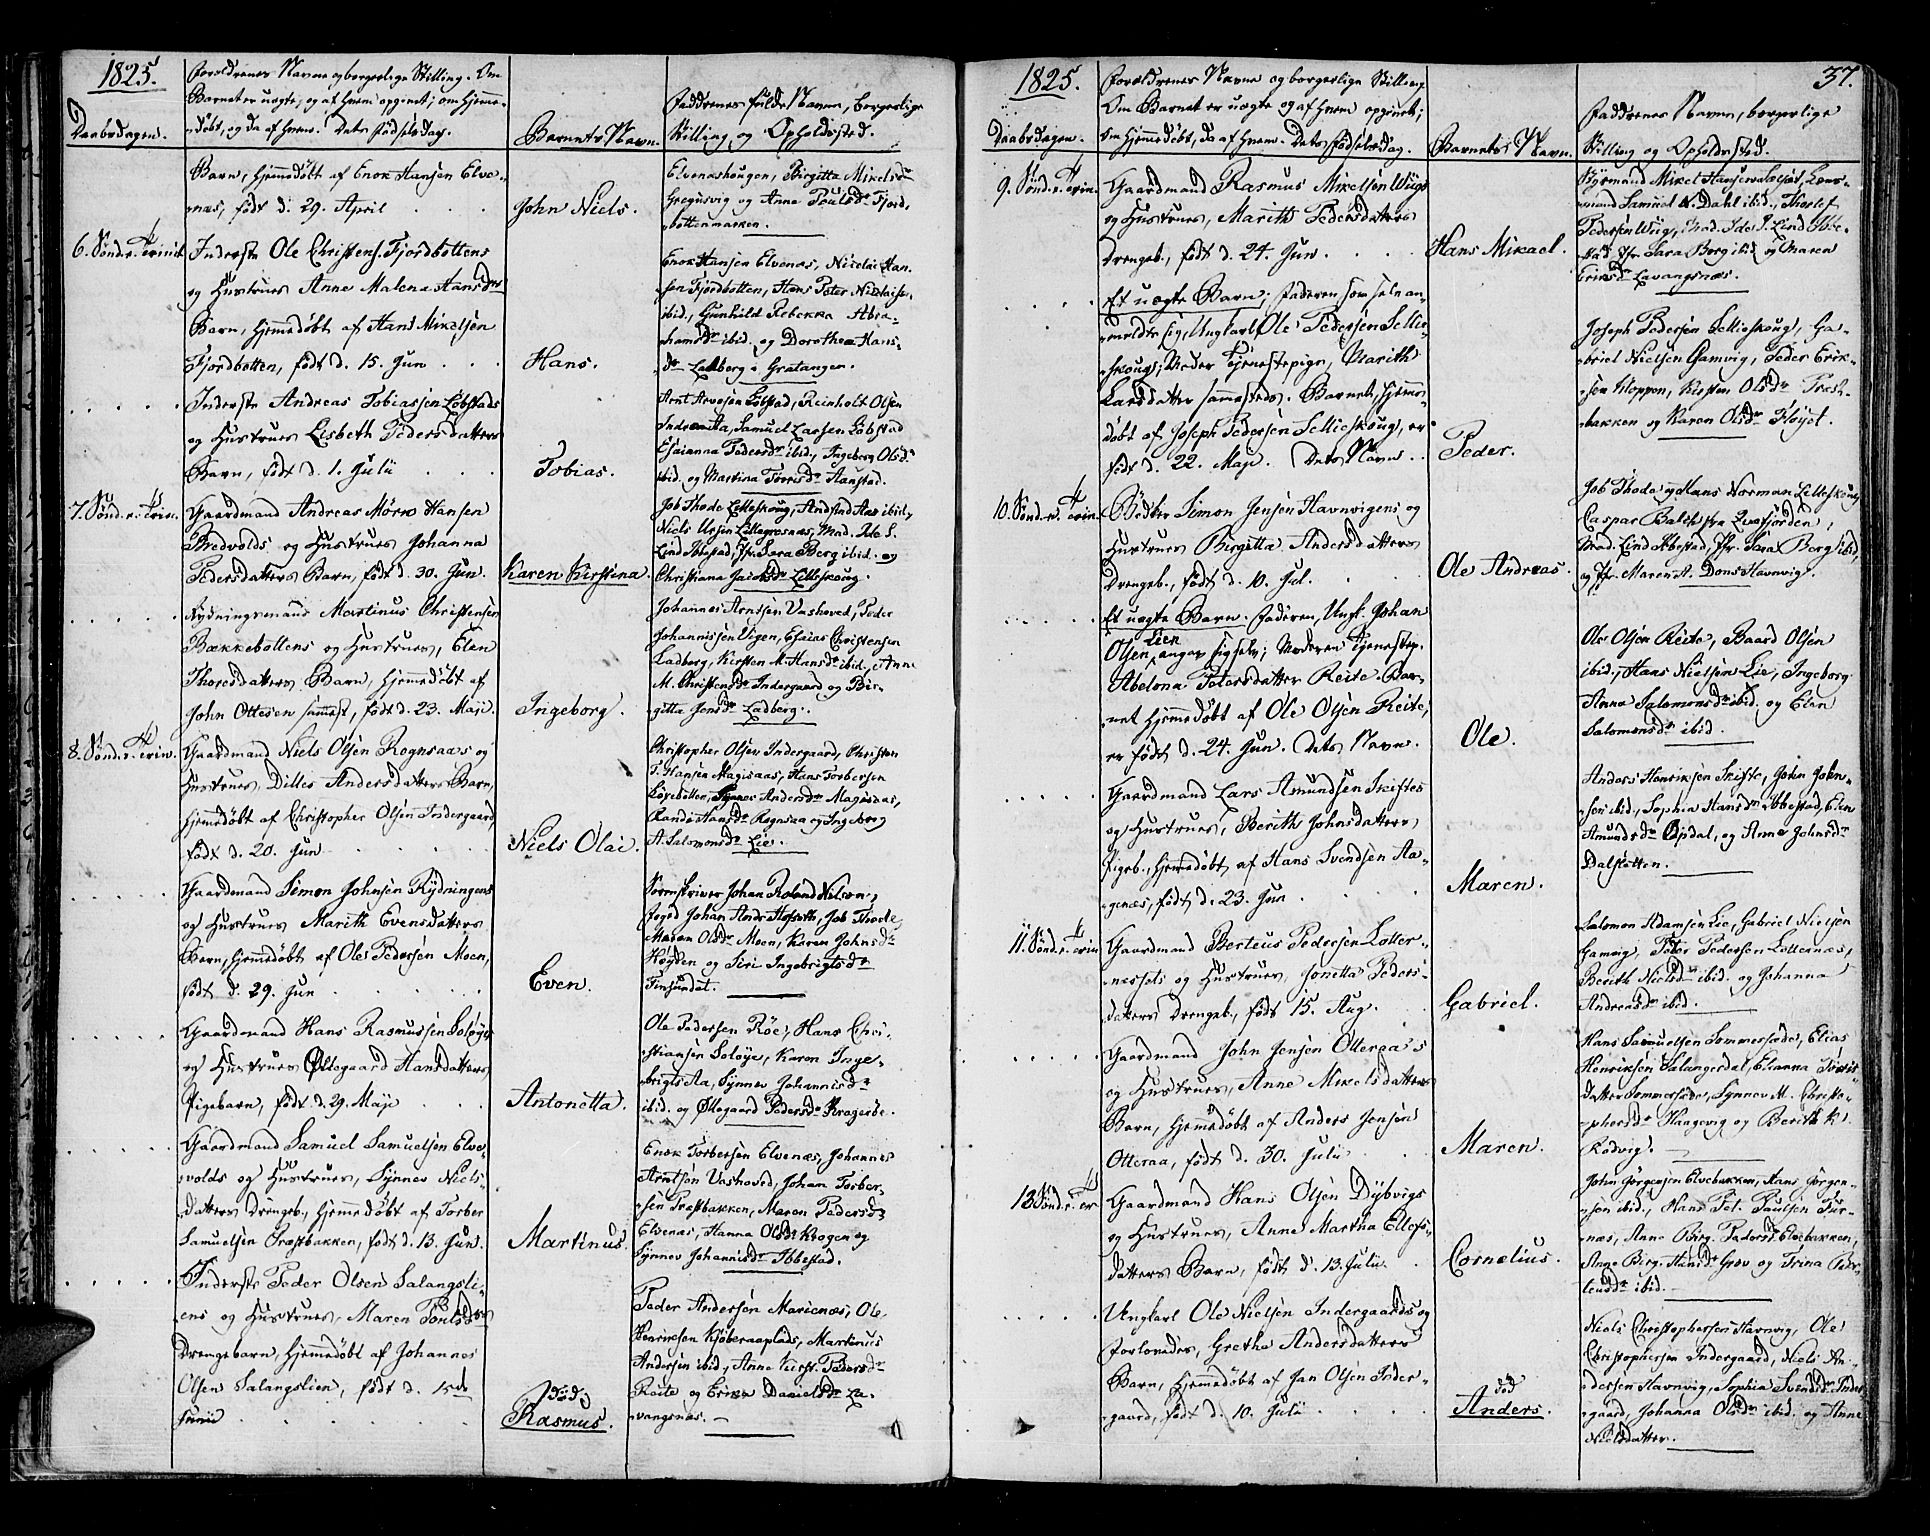 1825.
Daabsdagen.
Forældrenes Navne og borgerlige Stilling. Om
Barnet er uægte, og af hvem opgivet; om hjemme-
døbt, og da af hvem. Dets Fødselsdag.
Barnets Navn.
Faddrenes fulde Navn, borgerlige
Stilling og Opholdssted.
Barn, hjemmedøbt af Enok Hansen Elve-
næs, født d. 29. April
John Niels.
Elveneshougen, Birgitta Mikelsdr
Gregusvig og Anne Poulsdr Fjord-
bottenmarken.
6. Sønd. e. Trinit.
Inderste Ole Christens. Fjordbottens
og Hustrues Anne Malena Hansdrs
Barn, hjemmedøbt af Hans Mikelsen
Fjordbotten, født d. 15. Jun
Hans.
Enok Hansen Elvenæs, Nicolai Han-
sen Fjordbotten, Hans Peter Nicolaisen
ibid., Gunhild Rebekka Abra-
hamsdr ibid. og Dorothea Hans-
dr Ladberg i Gratangen.
Inderste Andreas Tobiassen Løbstads
og Hustrues Lisbeth Pedersdatters
Barn, født d. 1. Juli
Tobias.
Arnt Arvesen Løbstad, Reinholt Olsen
Indre Aa, Samuel Larsen Løbstad
Esaianna Pedersdr ibid., Ingeborg Olsdr
ibid. og Martina Torrisdr Aanstad.
7. Sønd. e. Trin.
Gaardmand Andreas Mörk Hansen
Bredvolds og Hustrues Johanna
Pedersdatters Barn, født d. 30. Jun.
Karen Kirstina
Job Thode Lilleskoug, Aas ibid,
Niels Ursin Lillegrosnæs, Mad. Ida S.
Lind Ibbestad, Jfr. Sara Berg ibid. og
Christiana Jacobsdr Lilleskoug.
Rydningsmand Martinus Christensen
Bækkebottens og Hustrues, Elen
Thoresdatters Barn, hjemedøbt af
John Ottesen sammest., født d. 23. Maje.
Ingeborg.
Johannes Arntsen Vashoved, Peder
Johannissen Vigen, Esaias Christensen
Ladberg, Kirsten M. Hansdr ibid., Anne
M. Christensdr Indergaard og Bir-
gitta Jensdr Ladberg.
8. Sønd. e. Trin.
Gaardmand Niels Olsen Rognsaas og
Hustrues, Dilles Andersdatters Barn,
hjemedøbt af Christopher Olsen Indergaard,
født d. 20. Jun
Niels Olai.
Christopher Olsen Indergaard, Christen
T. Hansen Magisaas, Hans Torbersen
Løxebotten, Synnev Andersdr Magisaas,
Rande Hansdr Rognsaa og Ingeborg
A. Salomonsdr Lie.
Gaardmand Simon Johnsen Rydningens
og Hustrues Marith Evensdatters
Barn, hjemedøbt af Ole Pedersen Moen,
født d. 29. Jun
Even.
Sorenskriver Johan Roland Nilson,
Foged Johan Andr. Hofseth, Job Thode,
Maren Olsdr Moen, Karen Johnsdr
Høgden og Siri Ingebrigtsdr
Finsundet.
Gaardmand Hans Rasmussen Soløys
og Hustrues Øllegaard Hansdatters
Pigebarn, født d. 29. Maje
Antonetta.
Ole Pedersen Röe, Hans Chri-
stiansen Soløye, Karen Inge-
brigts Aa, Synnev Johannisdr
ibid. og Øllegaard Pedersdr Kragerøe.
Gaardmand Samuel Samuelsen Elve-
volds og Hustrues, Synnev Niels-
datters Drengeb., hjemedøbt af Torber
Samuelsen Præstbakken, født d. 13. Jun.
Martinus.
Enok Torbersen Elvenæs, Johannes
Arntsen Vashoved, Johan Torber-
sen Præstbakken, Maren Pedersdr
Elvenæs, Hanna Olsdr Krogen og
Synnev Johannisdr Ibbestad.
Inderste Peder Olsens Salangsli-
ens og Hustrues, Maren Poulsdrs
Drengebarn, hjemmedøbt af Johannes
Olsen Salangslien, født d. 15de
Junii
død
Rasmus.
Peder Andersen Marienæs, Ole
Henriksen Kjøberaaplads, Martinus
Andersen ibid., Anne Kirst. Pedersdr
Reite og Danielsdr La-
vangsnæs.
1825.
37.
Daabsdagen.
Forældrenes Navne og borgerlige Stilling.
Om Barnet er uægte og af hvem opgivet;
om hjemmedøbt, da af hvem. Dets Fødselsdag.
Barnets Navn.
Faddrenes Navn, borgerlige
Stilling og Opholdssted.
9. Sønd. e. Trin.
Gaardmand Rasmus Mikelsen Wiigs
og Hustrues, Marith Pedersdatters
Drengeb., født d. 24. Jun
Hans Mikael.
Styrmand Mikel Hansen
mand Sammel A. Dahl ibid.,
Pedersen Wiig, Mad. Ida S. Lind Ibbe-
stad Jfr. Sara Berg ibid og Maren
Eriksdr Lavangsnæs.
Et uægte Barn; Faderen som selv an-
meldte sig, Ungkarl Ole Pedersen Sellie-
skoug; Moder Tjenestepige, Marith
Larsdatter sammesteds. Barnet, hjemme-
døbt af Joseph Pedersen Sellieskoug, er
født d. 22. Maje. Dets Navn
Peder.
Joseph Pedersen Sellieskoug, Ga-
briel Nielsen Gamvig, Peder Erik-
sen Kloppen, Kirsten Olsdr Præst-
bakken og Karen Olsdr Fløyet.
10. Sønd. e. Trin.
Bödker Simon Jensen Havnvigens og
Hustrues Birgitta Andersdatters
Drengeb., født d. 10. Jul.
Ole Andreas.
Job Thode og Hans Norman Lilleskoug
Caspar Balchstra Qvæfjorden,
Mad. Lind Ibbestad, Jfr. Sara Berg ibid,
og Jfr. Maren A. Dons Havnvig.
Et uægte Barn. Faderen, Ungk. Johan
Lien
Olsen, angav sig selv; Moderen Tjenestep.
Abelona Petersdatter Reite. Bar-
net hjemmedøbt af Ole Olsen Reite,
er født d. 24. Jun. Dets Navn.
Ole.
Ole Olsen Reite, Baard Olsen
ibid., Hans Nielsen Lie, Ingeborg
Anna Salomonsdr ibid. og Elen
Salomonsdr ibid.
Gaardmand Lars Amundsen Skiftes
og Hustrues, Berith Johnsdatters
Pigeb., hjemedøbt af Hans Svendsen Aa-
genæs, født d. 23. Jun
Maren.
Anders Henriksen Skifte, John John-
sen ibid., Sophia Hansdr Ibbestad, Elen
Amundsdr Opdal, og Anne Johnsdr
Dalsletten.
11. Sønd. e. Trin
Gaardmand Berteus Pedersen Lotter-
næssets og Hustrues, Jonetta Peders-
datters Drengeb., født 15. Aug.
Gabriel.
Salomon Adamsen Lie, Gabriel Nielsen
Gamvig, Peter Pedersen Lotternæs,
Berith Nielsdr ibid. og Johanna
Andreasdr ibid.
Gaardmand John Jensen Otteraa's
og Hustrues, Anne Mikelsdatters
Barn, hjemedøbt af Anders Jensen
Otteraa, født d. 30. Juli
Maren.
Hans Samuelsen Sommersæde, Elias
Henriksen Salangsdal, Elianna Torris-
datter Sommersæde, Synnev M. Christo-
phersdr Hangevig og Berith K.
Rødvig.
13. Sønd. e. Tr
Gaardmand Hans Olsen Dybvigs
og Hustrues, Anne Martha Ellefs-
datters Barn, født d. 13. Julii
Cornelius.
John Jörgensen Elvebakken, Hans Jörgen-
sen ibid., Hans Pet. Paulsen Fur-
næs, Anne Birg. Pedersd. Elvebakken,
Anne Birg. Hansdr Grov og Trina Peder-
ibid.
Ungkarl Ole Nielsen Indergaards og
Forlovedes, Grethe Andersdatters
Barn, hjemedøbt af Jan Olsen Inder-
gaard, født d. 10. Julii
død
Anders.
Niels Christophersen Havnvig, Ole
Christophersen Indergaard, Niels An-
dersen Havnvig, Sophia Svendsdr Inder-
gaard, Johanna Olsdr ibid. og Anne
Nielsdatter.